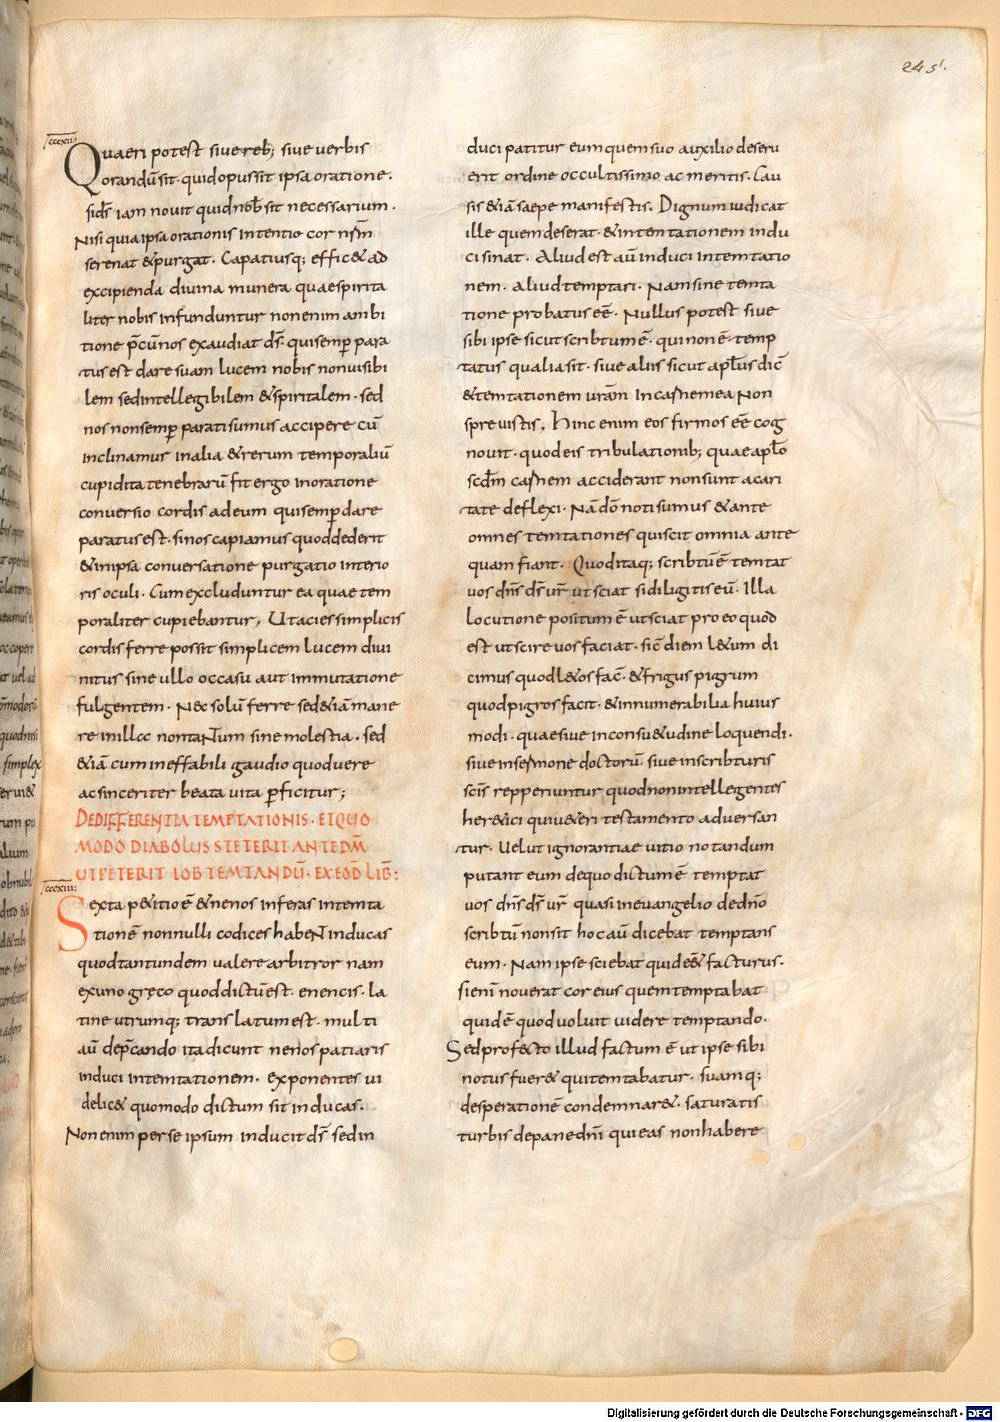 245.
cccxii
Quaeri potest siue reb; siue uerbis
orandū sit· quid opus sit ipsa oratione·
si d̄s iam nouit quid nob̄ sit necessarium·
Nisi quia ipsa orationis intentio cor nr̄m
serenat & purgat· Capatiusq; effic& ad
excipienda diuina munera quae spirita
liter nobis infunduntur non enim ambi
tione p̄cū nos exaudiat d̄s· qui semp̲ para
tus est dare suam lucem nobis non uisibi
lem sed intellegibilem & spiritalem· sed
nos non semp̲ parati sumus accipere cū
inclinamur in alia & rerum temporaliū
cupidita tenebrarū fit ergo in oratione
conuersio cordis ad eum qui semp̲ dare
paratus est· si nos capiamus quod dederit
& in ipsa conuersatione purgatio interio
ris oculi· Cum excluduntur ea quae tem
poraliter cupiebantur, Ut acies simplicis
cordis ferre possit simplicem lucem diui
nitus sine ullo occasu aut immutatione
fulgentem· Nec solū ferre sed &iā mane
re in illcc non tantum sine molestia· sed
&iā cum ineffabili gaudio quo duere
ac sinceriter beata uita p̲ficitur;
DE DIFFERENTIA TEMPTATIONIS· ET QUO
MODO DIABOLUS STETERIT ANTE DM̄
UT PETERIT IOB TEMTANDŪ· EX EOD̄ LIB̄:
cccxiii:
Sexta p&itio ē & ne nos inferas in temta
tionē nonnulli codices habent inducas
quod tantundem ualere arbitror nam
ex uno gręco quod dictū est· enencis· la
tine utrumq; translatum est· multi
aū dep̄cando ita dicunt ne nos patiaris
induci in temtationem· Exponentes ui
delic& quomodo dictum sit inducas·
Non enim per se ipsum inducit d̄s sed in
duci patitur eum quem suo auxilio deseru
erit ordine occultissimo ac meritis· Cau
sis &iā saepe manifestis· Dignum iudicat
ille quem deserat· & in temtationem indu
ci sinat· Aliud est aū induci in temtatio
nem· aliud temptari· Nam sine temta
tione probatus eē· Nullus potest siue
sibi ipse sicut scribtum ē· qui non ē· temp
tatus qualia sit· siue aliis sicut apl̄us dic̄
& temtationem ur̄am in carne mea non
spreuistis, hinc enim eos firmos eē cog
nouit· quod eis tribulationib; quae apl̄o
scd̄m carnem acciderant non sunt a cari
tate deflexi· Nā dō noti sumus & ante
omnes temtationes qui scit omnia ante
quam fiant· Quod itaq; scribtū ē temtat
uos dn̄s d̄s ur̄ ut sciat si diligitis eū· Illa
locutione positum ē ut sciat pro eo quod
est ut scire uos faciat· sic̄ diem l&um di
cimus quod l&os fac̄· & frigus pigrum
quod pigros facit· & innumerabilia huius
modi· quae siue in consu&udine loquendi·
siue in sermone doctorū siue in scribturis
sc̄is repperiuntur quod non intellegentes
her&ici qui u&eri testamento aduersan
tur· Uelut ignorantiae uitio notandum
putant eum de quo dictum ē temptat
uos dn̄s d̄s ur̄ quasi in euangelio de dn̄o
scribtū non sit hoc aū dicebat temptans
eum· Nam ipse sciebat quid e& facturus·
si enī nouerat cor eius quem temptabat
quid ē quod uoluit uidere temptando·
Sed profecto illud factum ē ut ipse sibi
notus fuer& qui temtabatur· suamq;
desperationē condemnar&· saturatis
turbis de pane dn̄i qui eas non habere
Digitalisierung gefördert durch die Deutsche Forschungsgemeinschaft - DFG